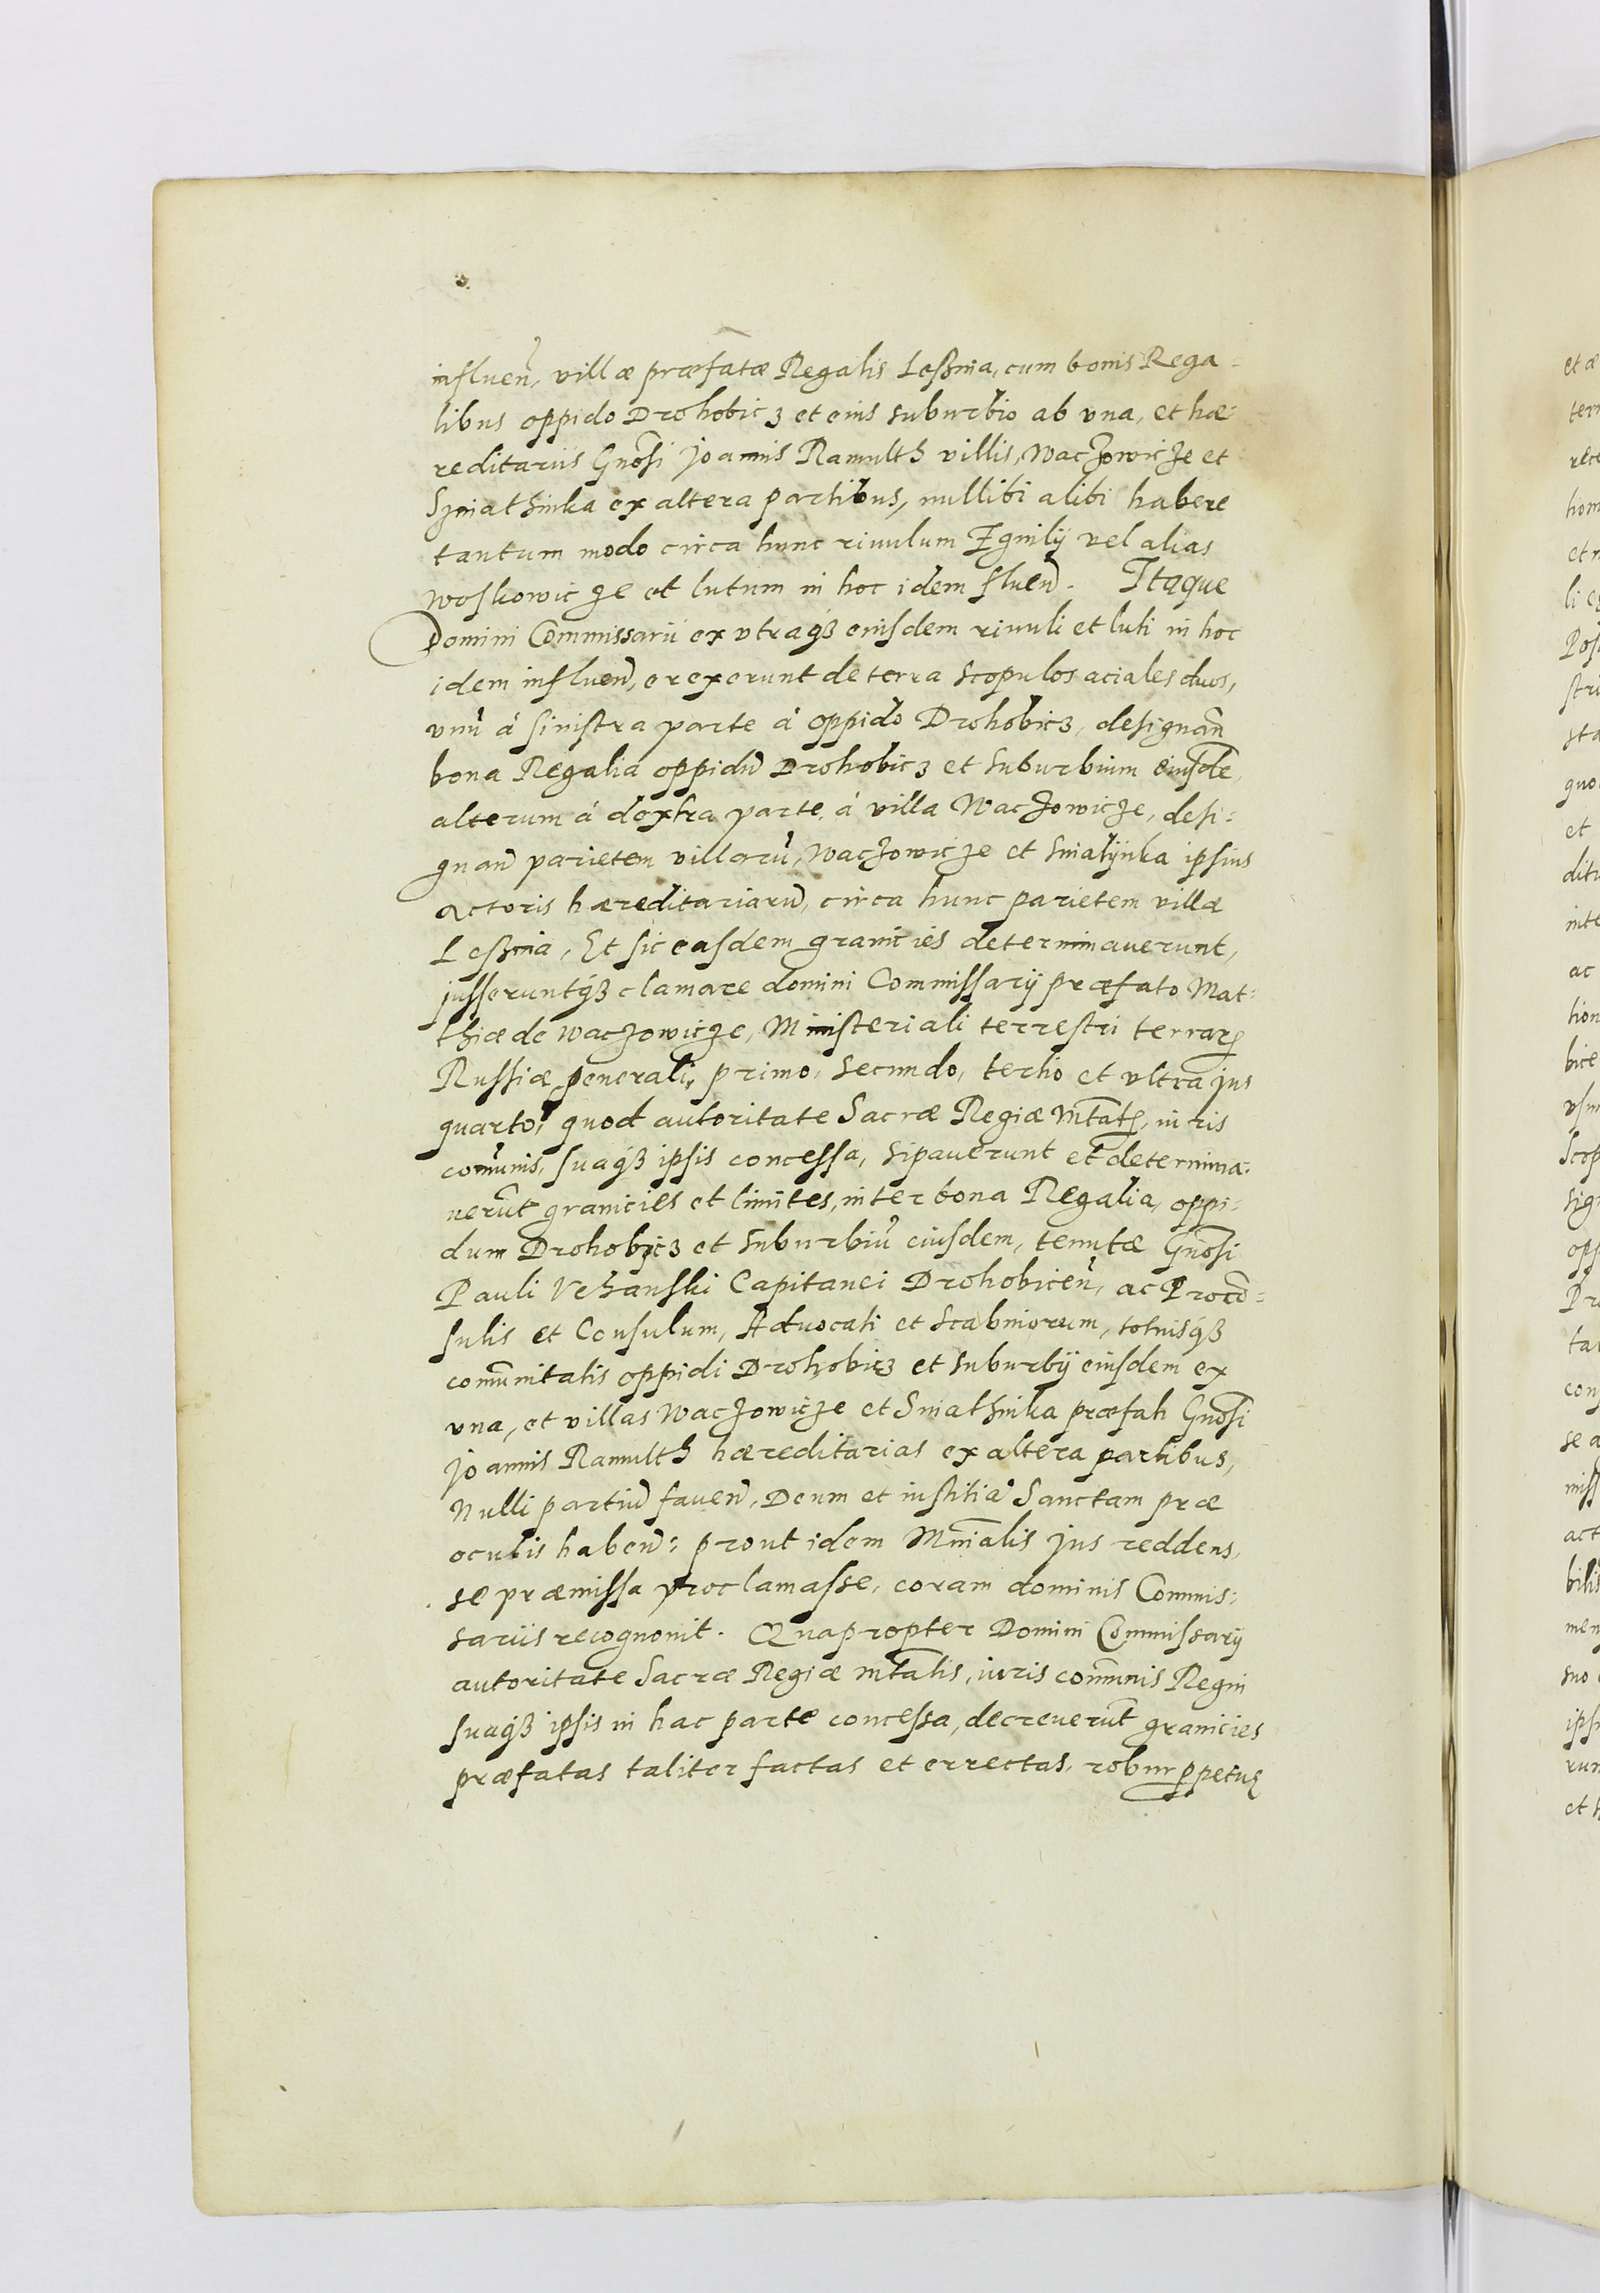 influen̄, villæ præfatæ Regalis Leßnia, cum bonis Rega-
libus oppido Drohobicz et eius suburbio ab vna, et hæ-
reditariis Gnōsi Joannis Ramulth villis, Waczowicze et
Szniathinka ex altera partibus, nullibi alibi habere
tantum modo circa hunc riuulum Zgnilÿ vel alias
Woskowicze et lutum in hoc idem fluen̄. Itaque
Domini Commissarii ex vtraqȝ eiusdem riuuli et luti in hoc
idem influen̄, erexerunt de terra scopulos aciales duos,
vnū á sinistra parte á oppido Drohobicz, designan̄
bona Regalia oppidū Drohobicz et suburbium eiusdē,
alterum á dextra parte, á villa Waczowicze, desi-
gnan̄ parietem villarū, Waczowicze et Sniatÿnka ipsius
Actoris hæreditariarū, circa hunc parietem villæ
Leßnia, Et sic easdem granicies determinauerunt,
jusseruntqȝ clamare domini Commissarÿ præfato Mat-
thiæ de Waczowicze, Ministeriali terrestri terrarꝝ
Russiæ generali, primo, secundo, tertio et vltra jus
quarto, quod autoritate Sacræ Regiæ Mtatꝭ, iuris
com̄unis, suaqȝ ipsis concessa, sipauerunt et determina-
uerūt granicies et limites, inter bona Regalia, oppi-
dum Drohobicz et suburbiū eiusdem, tenutæ Gnōsi
Pauli Vchanski Capitanei Drohobicen̄, ac Procō-
sulis et Consulum, Aduocati et Scabinorum, totiusqȝ
com̄unitatis oppidi Drohobicz et suburbÿ eiusdem ex
vna, et villas Waczowicze et Sniathinka præfati Gnōsi
Joannis Ramulth hæreditarias ex altera partibus,
Nulli partiū fauen̄, Deum et iustitiā Sanctam præ
oculis haben̄: prout idem Mn̄ialis jus reddens,
se præmissa proclamasse, coram dominis Commis-
sariis recognouit. Quapropter Domini Commissarÿ
autoritate Sacræ Regiæ Mtatis, iuris com̄unis Regni
suaqȝ ipsis in hac parte concessa, decreuerūt granicies
præfatas taliter factas et errectas, robur ꝑpetuꝭ